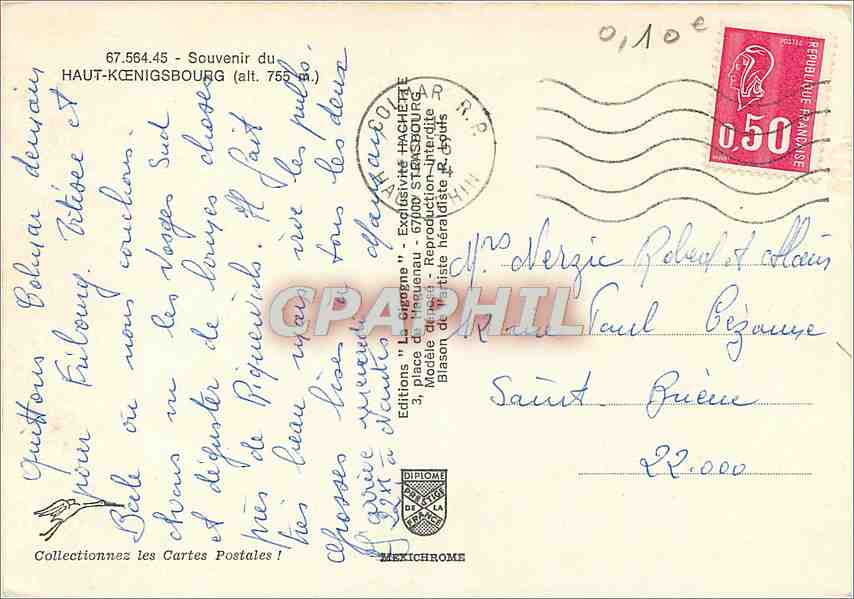 0,10€
67.564.45 - Souvenir du
HAUT-KŒNIGSBOURG (alt. 755 m.)
POSTES
REPUBLIQUE FRANÇAISE
0,50
COLMAR R.P.
HAUT RHIN
Quittons Colmar demain
pour Fribourg. Titisee et
Bale où nous couchons.
Avons vu les Vosges Sud
et déguster de bonnes choses
près de Riquewihr. Il fait
très beau mais vive les pulls.
Grosses bises à tous les deux
J'arrive mercredi Maman
à Nantes
Editions "La Cigogne" - Exclusivité HACHETTE
3, place de Haguenau - 67000 STRASBOURG
Modèle déposé - Reproduction interdite
Blason de l'artiste héraldiste R. Louis
Mrs Nerzic Robert et Alain
12 rue Paul Cézanne
Saint-Brieuc
22.000
CPAPHIL
DIPLOME
PRESTIGE
DE LA
FRANCE
MEXICHROME
Collectionnez les Cartes Postales !